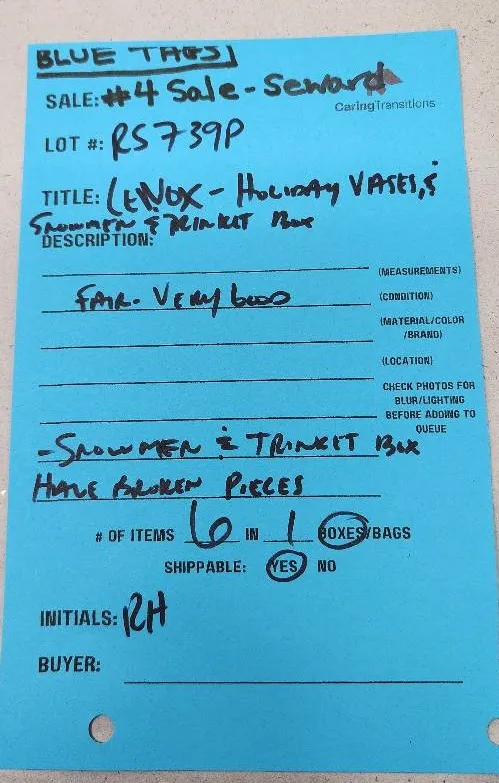 BLUE TAGS
SALE: #4 Sale - Seward
CaringTransitions
LOT #: RS739P
TITLE: LENOX - HOLIDAY VASES, &
SNOWMEN & TRINKIT BOX
DESCRIPTION:
(MEASUREMENTS)
FAIR - VERY GOOD (CONDITION)
(MATERIAL/COLOR
/BRAND)
(LOCATION)
CHECK PHOTOS FOR
BLUR/LIGHTING
BEFORE ADDING TO
QUEUE
- SNOWMEN & TRINKIT BOX
HAVE BROKEN PIECES
# OF ITEMS 6 IN 1 BOXES/BAGS
SHIPPABLE: YES NO
INITIALS: RH
BUYER: